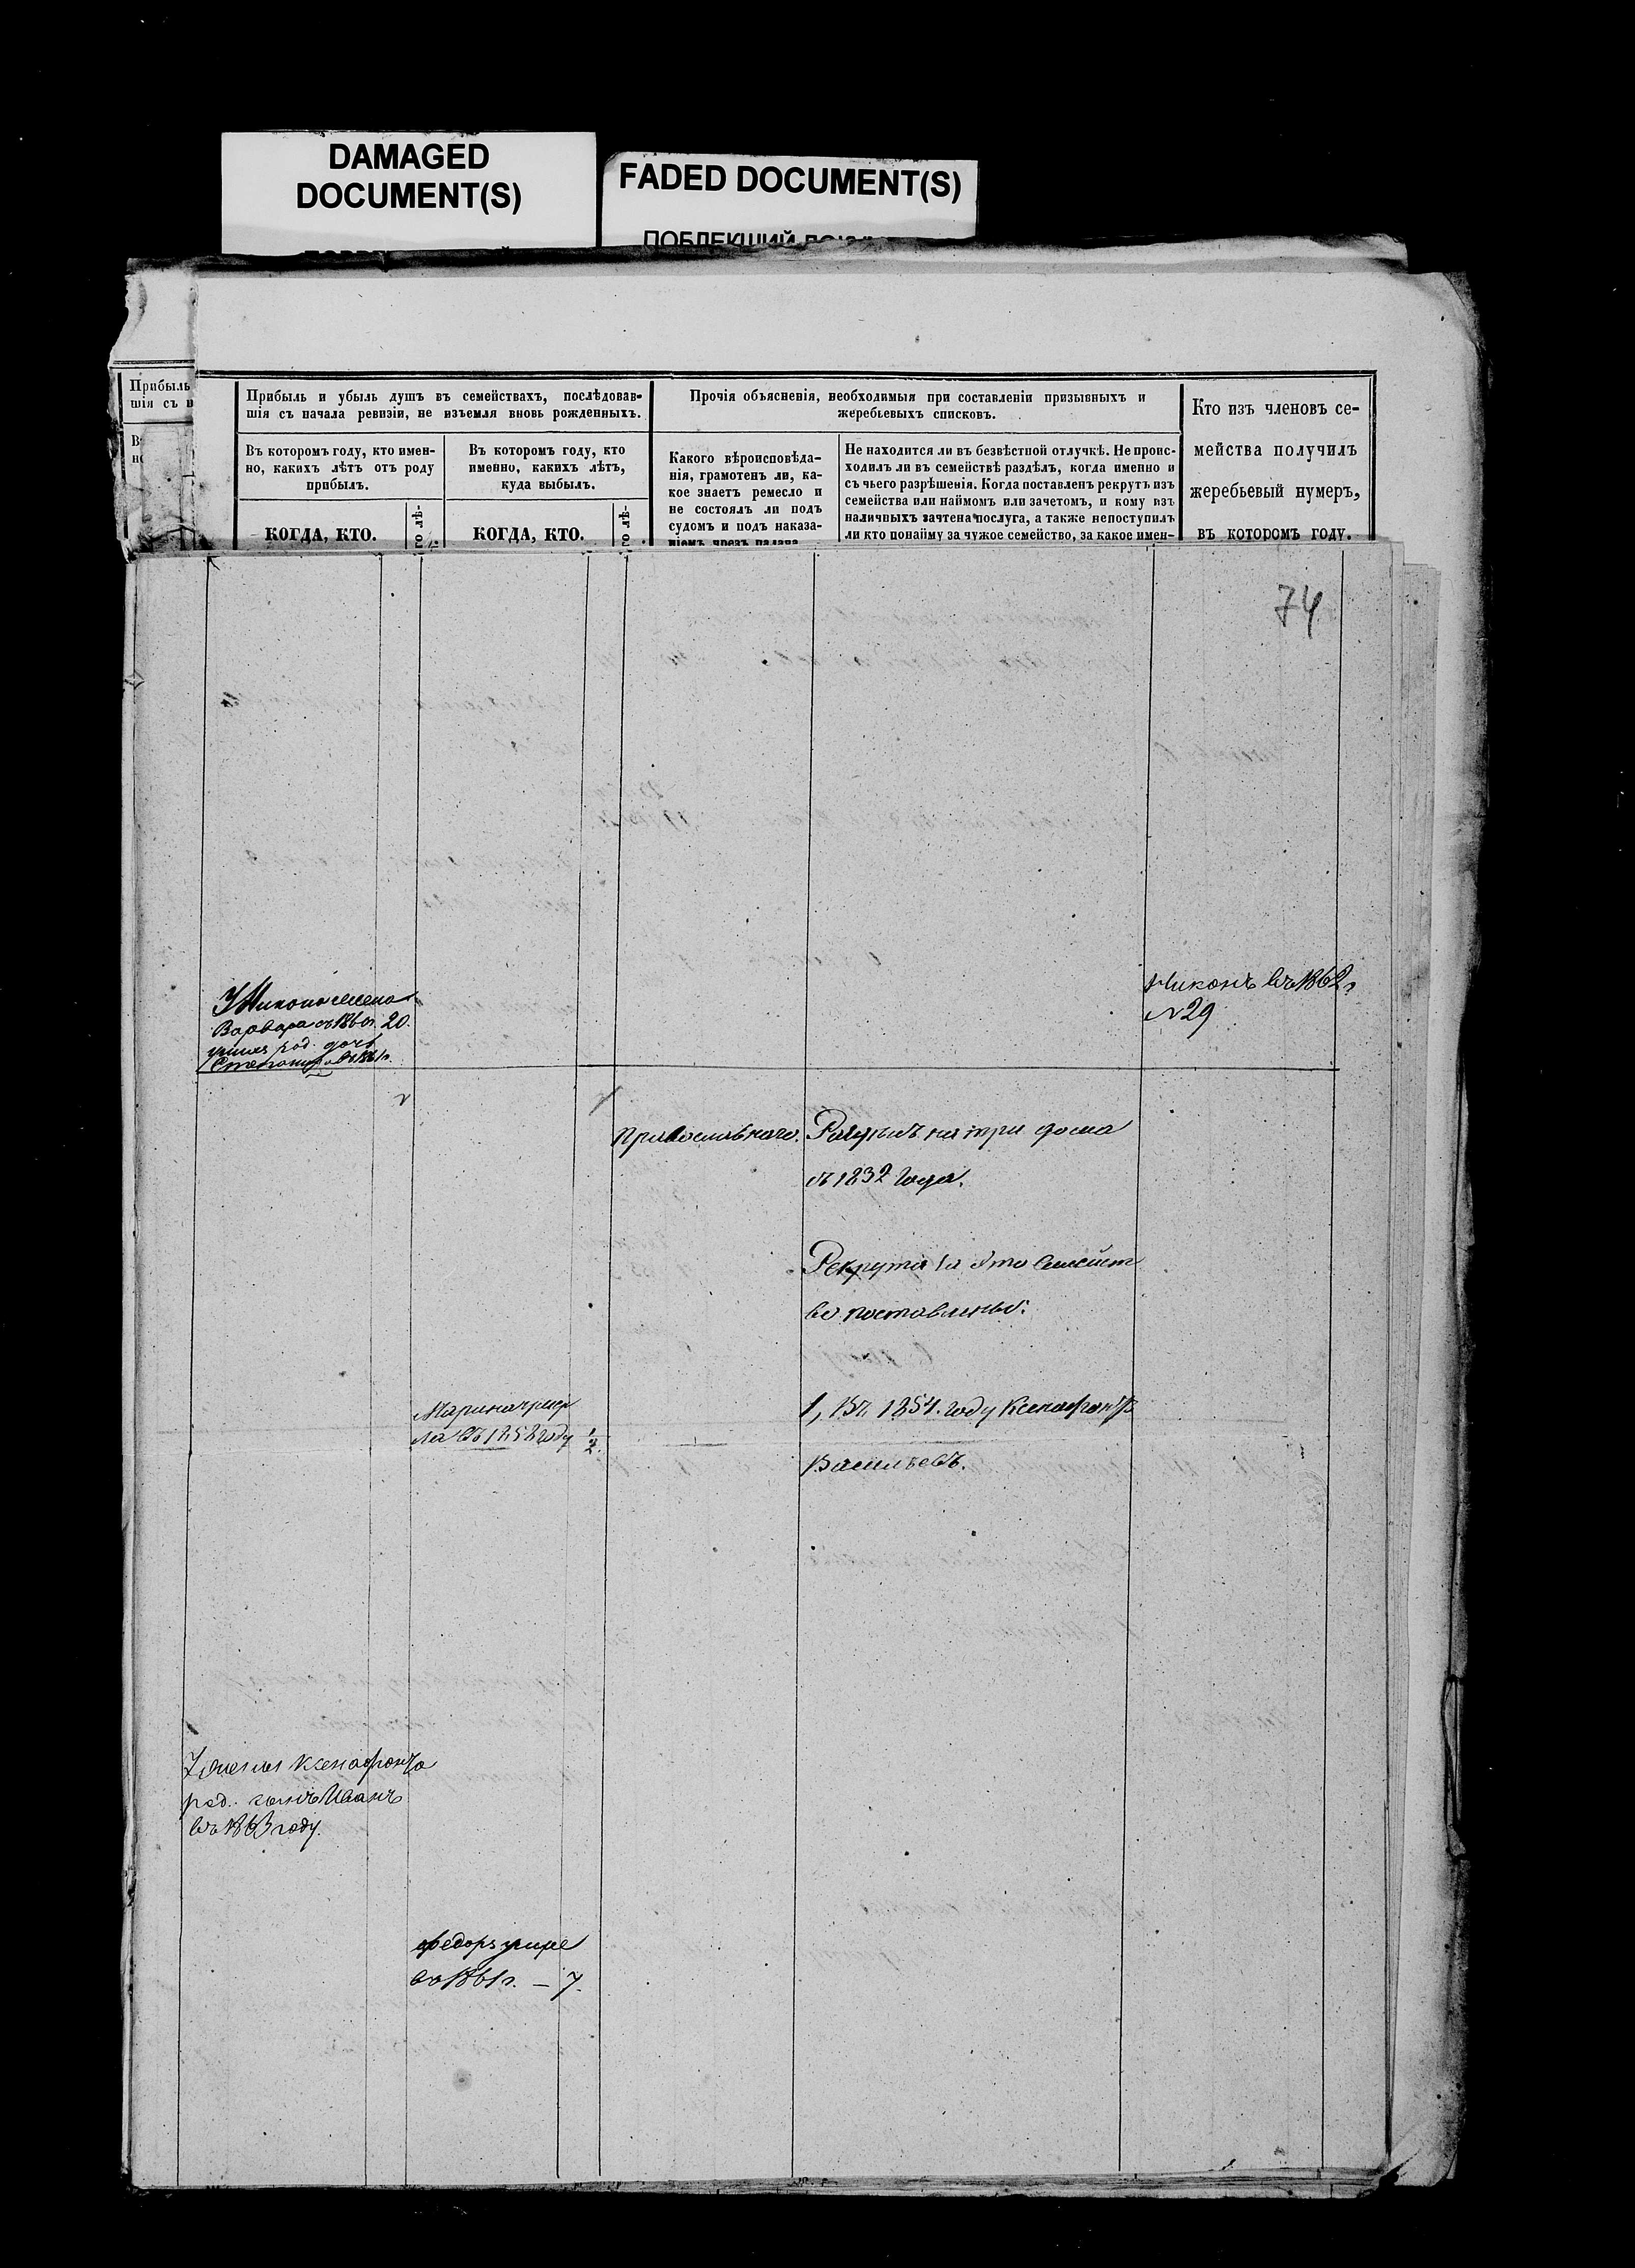 DAMAGED
DOCUMENT(S)
FADED DOCUMENT(S)
ПОБЛЕКШИЙ
Прибыль
шія съ н
Прибыль и убыль душъ въ семействахъ, послѣдовав-
шія съ начала ревизіи, не изъемля вновь рожденныхъ.
Въ которомъ году, кто имен-
но, какихъ лѣтъ отъ роду
прибылъ.
КОГДА, КТО.
Въ которомъ году, кто
именно, какихъ лѣтъ,
куда выбылъ.
КОГДА, КТО.
Прочія объясненія, необходимыя при составленіи призывныхъ и
жеребьевыхъ списковъ.
Какого вѣроисповѣда-
нія, грамотенъ ли, ка-
кое знаетъ ремесло и
не состоялъ ли подъ
судомъ и подъ наказа-
ніемъ чрезъ палача
Не находится ли въ безвѣстной отлучкѣ. Не проис-
ходилъ ли въ семействѣ раздѣлъ, когда именно и
съ чьего разрѣшенія. Когда поставленъ рекрутъ изъ
семейства или наймомъ или зачетомъ, и кому изъ
наличныхъ зачтена послуга, а также непоступилъ
ли кто понайму за чужое семейство, за какое имен-
Кто изъ членовъ се-
мейства получилъ
жеребьевый нумеръ,
въ которомъ году.
74
Никонъ въ 1862 г
№ 29
У Никона жена
Варвара съ 1860 г. 20.
у них род. дочь
Степанида въ 1861 г.
православнаго.
Раздѣлъ на три дома
съ 1832 года.
Рекрута за это семейст
во поставлены:
Марина умер
ла въ 1858 году 1/2.
1, Въ 1854. году Ксенофонтъ
Васильевъ.
Ксенофонта
род. сынъ Иванъ
въ 1863 году.
Федоръ умре
въ 1861 г. — 7.